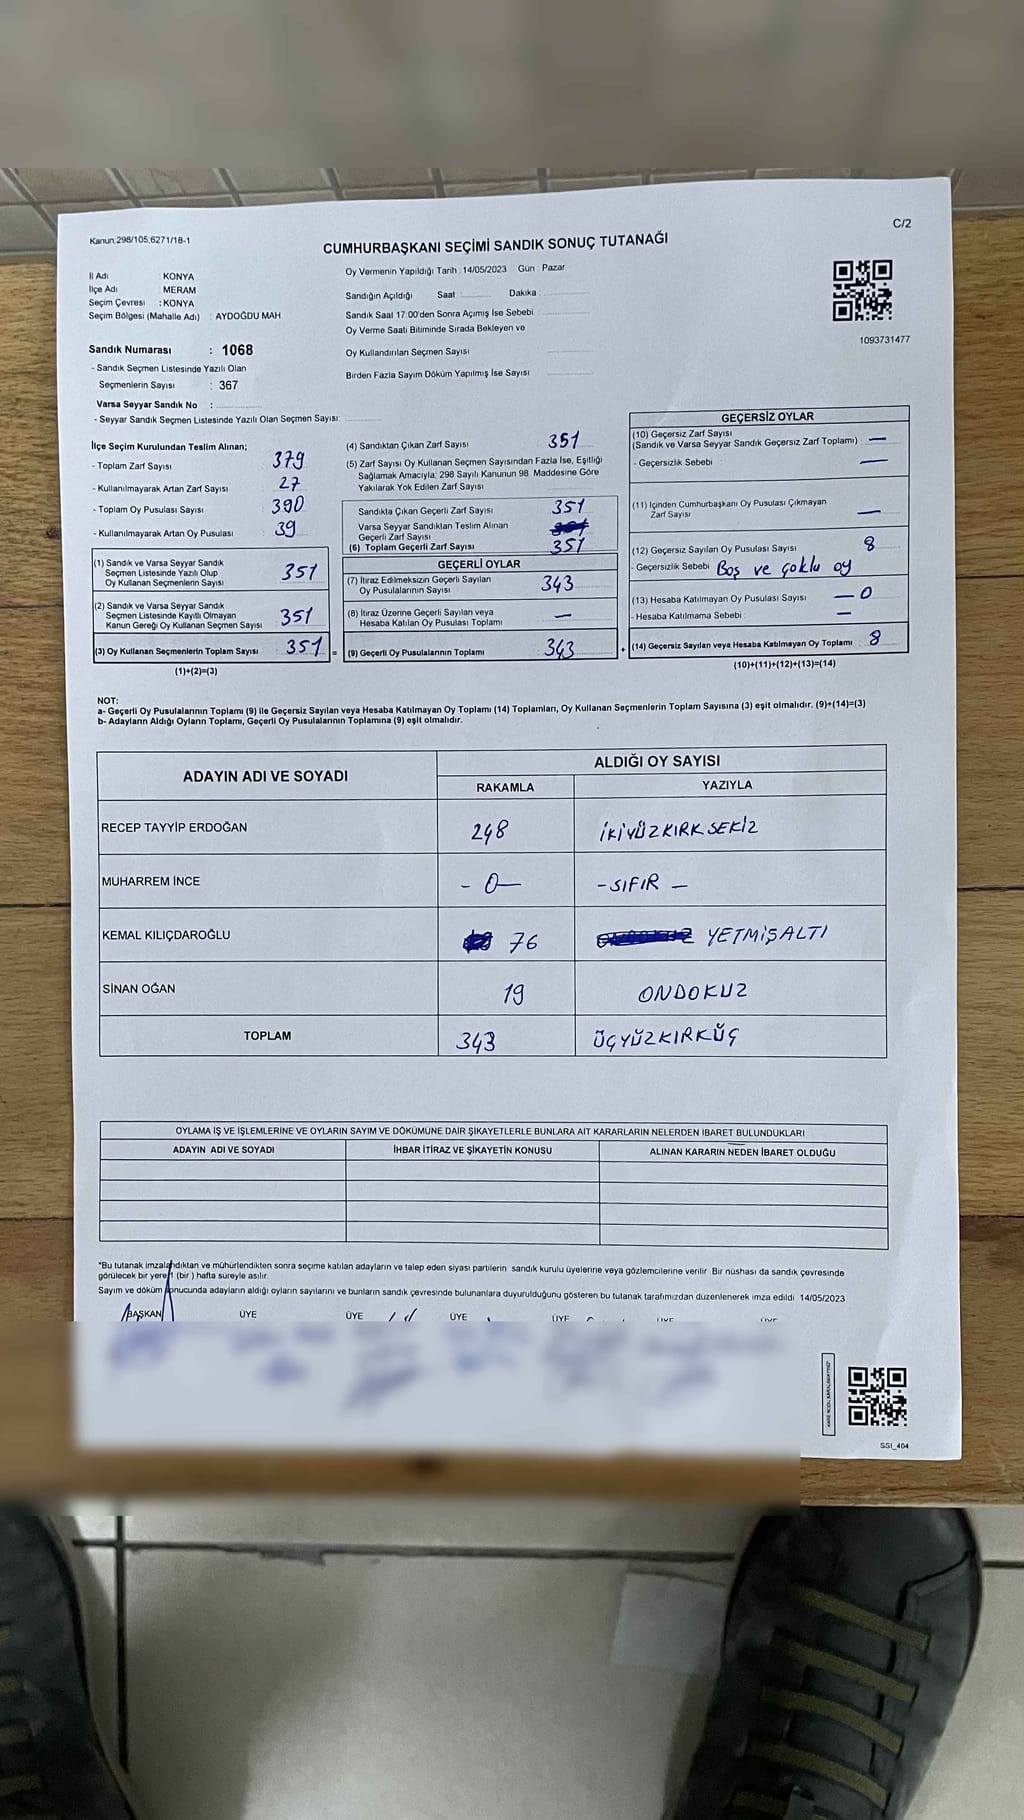 C/2
Kanun.298/105,6271/18-1
CUMHURBAŞKANI SEÇİMİ SANDIK SONUÇ TUTANAĞI
İl Adı KONYA
İlçe Adı MERAM
Seçim Çevresi : KONYA
Seçim Bölgesi (Mahalle Adı) : AYDOĞDU MAH
Oy Vermenin Yapıldığı Tarih : 14/05/2023 Gün : Pazar
Sandığın Açıldığı Saat Dakika :
Sandık Saat 17:00'den Sonra Açımış İse Sebebi
Oy Verme Saati Bitiminde Sırada Bekleyen ve
Oy Kullandırılan Seçmen Sayısı
Birden Fazla Sayım Döküm Yapılmış İse Sayısı
1093731477
Sandık Numarası : 1068
- Sandık Seçmen Listesinde Yazılı Olan
Seçmenlerin Sayısı : 367
Varsa Seyyar Sandık No :
- Seyyar Sandık Seçmen Listesinde Yazılı Olan Seçmen Sayısı:
İlçe Seçim Kurulundan Teslim Alınan;
- Toplam Zarf Sayısı : 379
- Kullanılmayarak Artan Zarf Sayısı : 27
- Toplam Oy Pusulası Sayısı : 390
- Kullanılmayarak Artan Oy Pusulası : 39
(1) Sandık ve Varsa Seyyar Sandık
Seçmen Listesinde Yazılı Olup
Oy Kullanan Seçmenlerin Sayısı 351
(2) Sandık ve Varsa Seyyar Sandık
Seçmen Listesinde Kayıtlı Olmayan
Kanun Gereği Oy Kullanan Seçmen Sayısı 351
(3) Oy Kullanan Seçmenlerin Toplam Sayısı 351 =
(1)+(2)=(3)
(4) Sandıktan Çıkan Zarf Sayısı 351
(5) Zarf Sayısı Oy Kullanan Seçmen Sayısından Fazla İse, Eşitliği
Sağlamak Amacıyla, 298 Sayılı Kanunun 98. Maddesine Göre
Yakılarak Yok Edilen Zarf Sayısı
Sandıkta Çıkan Geçerli Zarf Sayısı 351
Varsa Seyyar Sandıktan Teslim Alınan
Geçerli Zarf Sayısı
(6) Toplam Geçerli Zarf Sayısı 351
GEÇERLİ OYLAR
(7) İtiraz Edilmeksizin Geçerli Sayılan
Oy Pusulalarının Sayısı 343
(8) İtiraz Üzerine Geçerli Sayılan veya
Hesaba Katılan Oy Pusulası Toplamı —
(9) Geçerli Oy Pusulalarının Toplamı 343 +
GEÇERSİZ OYLAR
(10) Geçersiz Zarf Sayısı
(Sandık ve Varsa Seyyar Sandık Geçersiz Zarf Toplamı) : —
- Geçersizlik Sebebi : —
(11) İçinden Cumhurbaşkanı Oy Pusulası Çıkmayan
Zarf Sayısı —
(12) Geçersiz Sayılan Oy Pusulası Sayısı 8
- Geçersizlik Sebebi Boş ve çoklu oy
(13) Hesaba Katılmayan Oy Pusulası Sayısı — 0
- Hesaba Katılmama Sebebi : —
(14) Geçersiz Sayılan veya Hesaba Katılmayan Oy Toplamı : 8
(10)+(11)+(12)+(13)=(14)
NOT:
a- Geçerli Oy Pusulalarının Toplamı (9) ile Geçersiz Sayılan veya Hesaba Katılmayan Oy Toplamı (14) Toplamları, Oy Kullanan Seçmenlerin Toplam Sayısına (3) eşit olmalıdır. (9)+(14)=(3)
b- Adayların Aldığı Oyların Toplamı, Geçerli Oy Pusulalarının Toplamına (9) eşit olmalıdır.
ADAYIN ADI VE SOYADI
ALDIĞI OY SAYISI
RAKAMLA YAZIYLA
RECEP TAYYİP ERDOĞAN 248 İKİYÜZKIRKSEKİZ
MUHARREM İNCE - 0 — - SIFIR —
KEMAL KILIÇDAROĞLU 76 YETMİŞALTI
SİNAN OĞAN 19 ONDOKUZ
TOPLAM 343 ÜÇYÜZKIRKÜÇ
OYLAMA İŞ VE İŞLEMLERİNE VE OYLARIN SAYIM VE DÖKÜMÜNE DAİR ŞİKAYETLERLE BUNLARA AİT KARARLARIN NELERDEN İBARET BULUNDUKLARI
ADAYIN ADI VE SOYADI İHBAR İTİRAZ VE ŞİKAYETİN KONUSU ALINAN KARARIN NEDEN İBARET OLDUĞU
*Bu tutanak imzalandıktan ve mühürlendikten sonra seçime katılan adayların ve talep eden siyasi partilerin sandık kurulu üyelerine veya gözlemcilerine verilir. Bir nüshası da sandık çevresinde
görülecek bir yere 1 (bir ) hafta süreyle asılır.
Sayım ve döküm sonucunda adayların aldığı oyların sayılarını ve bunların sandık çevresinde bulunanlara duyurulduğunu gösteren bu tutanak tarafımızdan düzenlenerek imza edildi. 14/05/2023
BAŞKAN ÜYE ÜYE ÜYE ÜYE ÜYE ÜYE
SSI_404